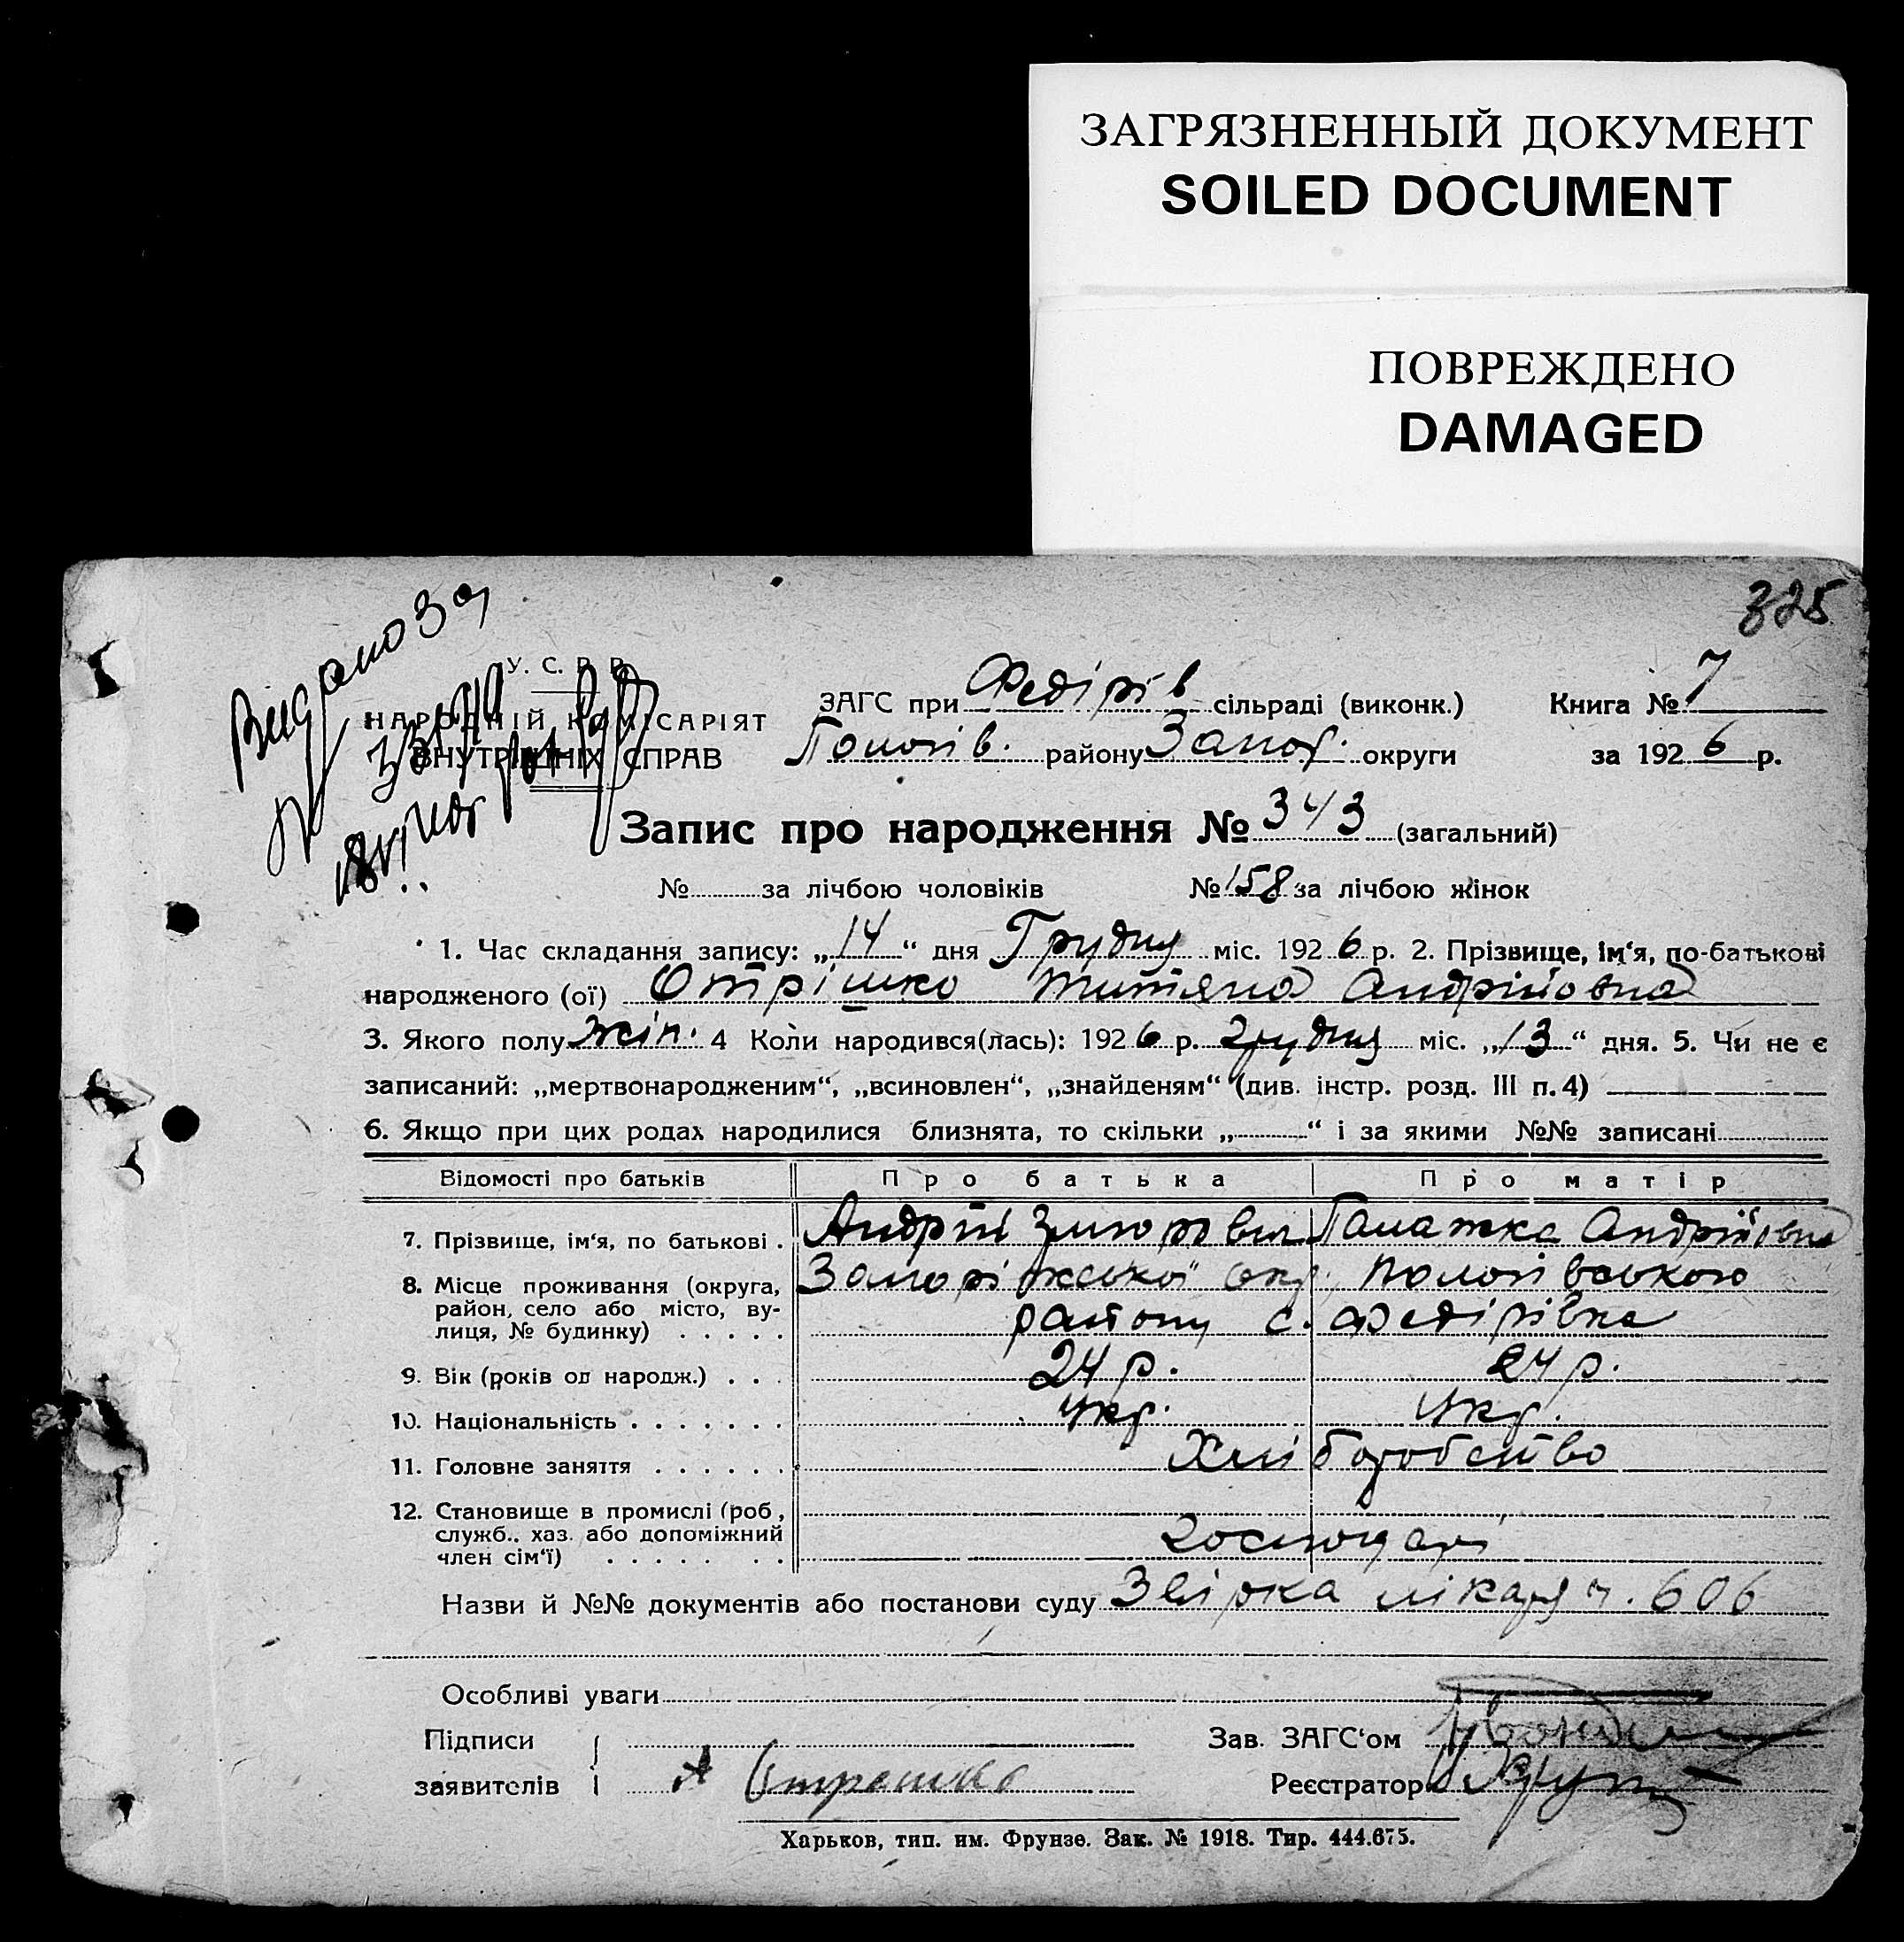 ЗАГРЯЗНЕННЫЙ ДОКУМЕНТ
SOILED DOCUMENT
ПОВРЕЖДЕНО
DAMAGED
325
Видано
У. С. Р. Р.
НАРОДНІЙ КОМІСАРІЯТ
ВНУТРІШНІХ СПРАВ
ЗАГС при Федірів сільраді (виконк.) Книга № 7
Пологів. району Запор. округи за 1926 р.
Запис про народження № 343 (загальний)
№ за лічбою чоловіків № 158 за лічбою жінок
1. Час складання запису: „14“ дня Грудня міс. 1926 р. 2. Прізвище, ім‘я, по-батькові
народженого (ої) Отрішко Титяна Андрійовна
3. Якого полу жін. 4 Коли народився(лась): 1926 р. грудня міс. „13“ дня. 5. Чи не є
записаний: „мертвонародженим“, „всиновлен“, „знайденям“ (див. інстр. розд. III п. 4)
6. Якщо при цих родах народилися близнята, то скільки „ “ і за якими №№ записані
Відомості про батьків Про батька Про матір
7. Прізвище, ім‘я, по батькові . Андрій Андрійовна
8. Місце проживання (округа, Запоріжської окр. Пологівського
район, село або місто, ву- району с. Федірівка
лиця, № будинку) . . . . .
9. Вік (років од народж.) . . . 24 р. 24 р.
10. Національність . . . . . . . Укр. Укр.
11. Головне заняття . . . . . . Хліборобство
12. Становище в промислі (роб,
служб., хаз. або допоміжний господарі
член сім‘ї) . . . . . . .
Назви й №№ документів або постанови суду лікаря ч. 606
Особливі уваги
Підписи Зав. ЗАГС‘ом
заявителів А Отрешко Реєстратор
Харьков, тип. им. Фрунзе. Зак. № 1918. Тир. 444.675.